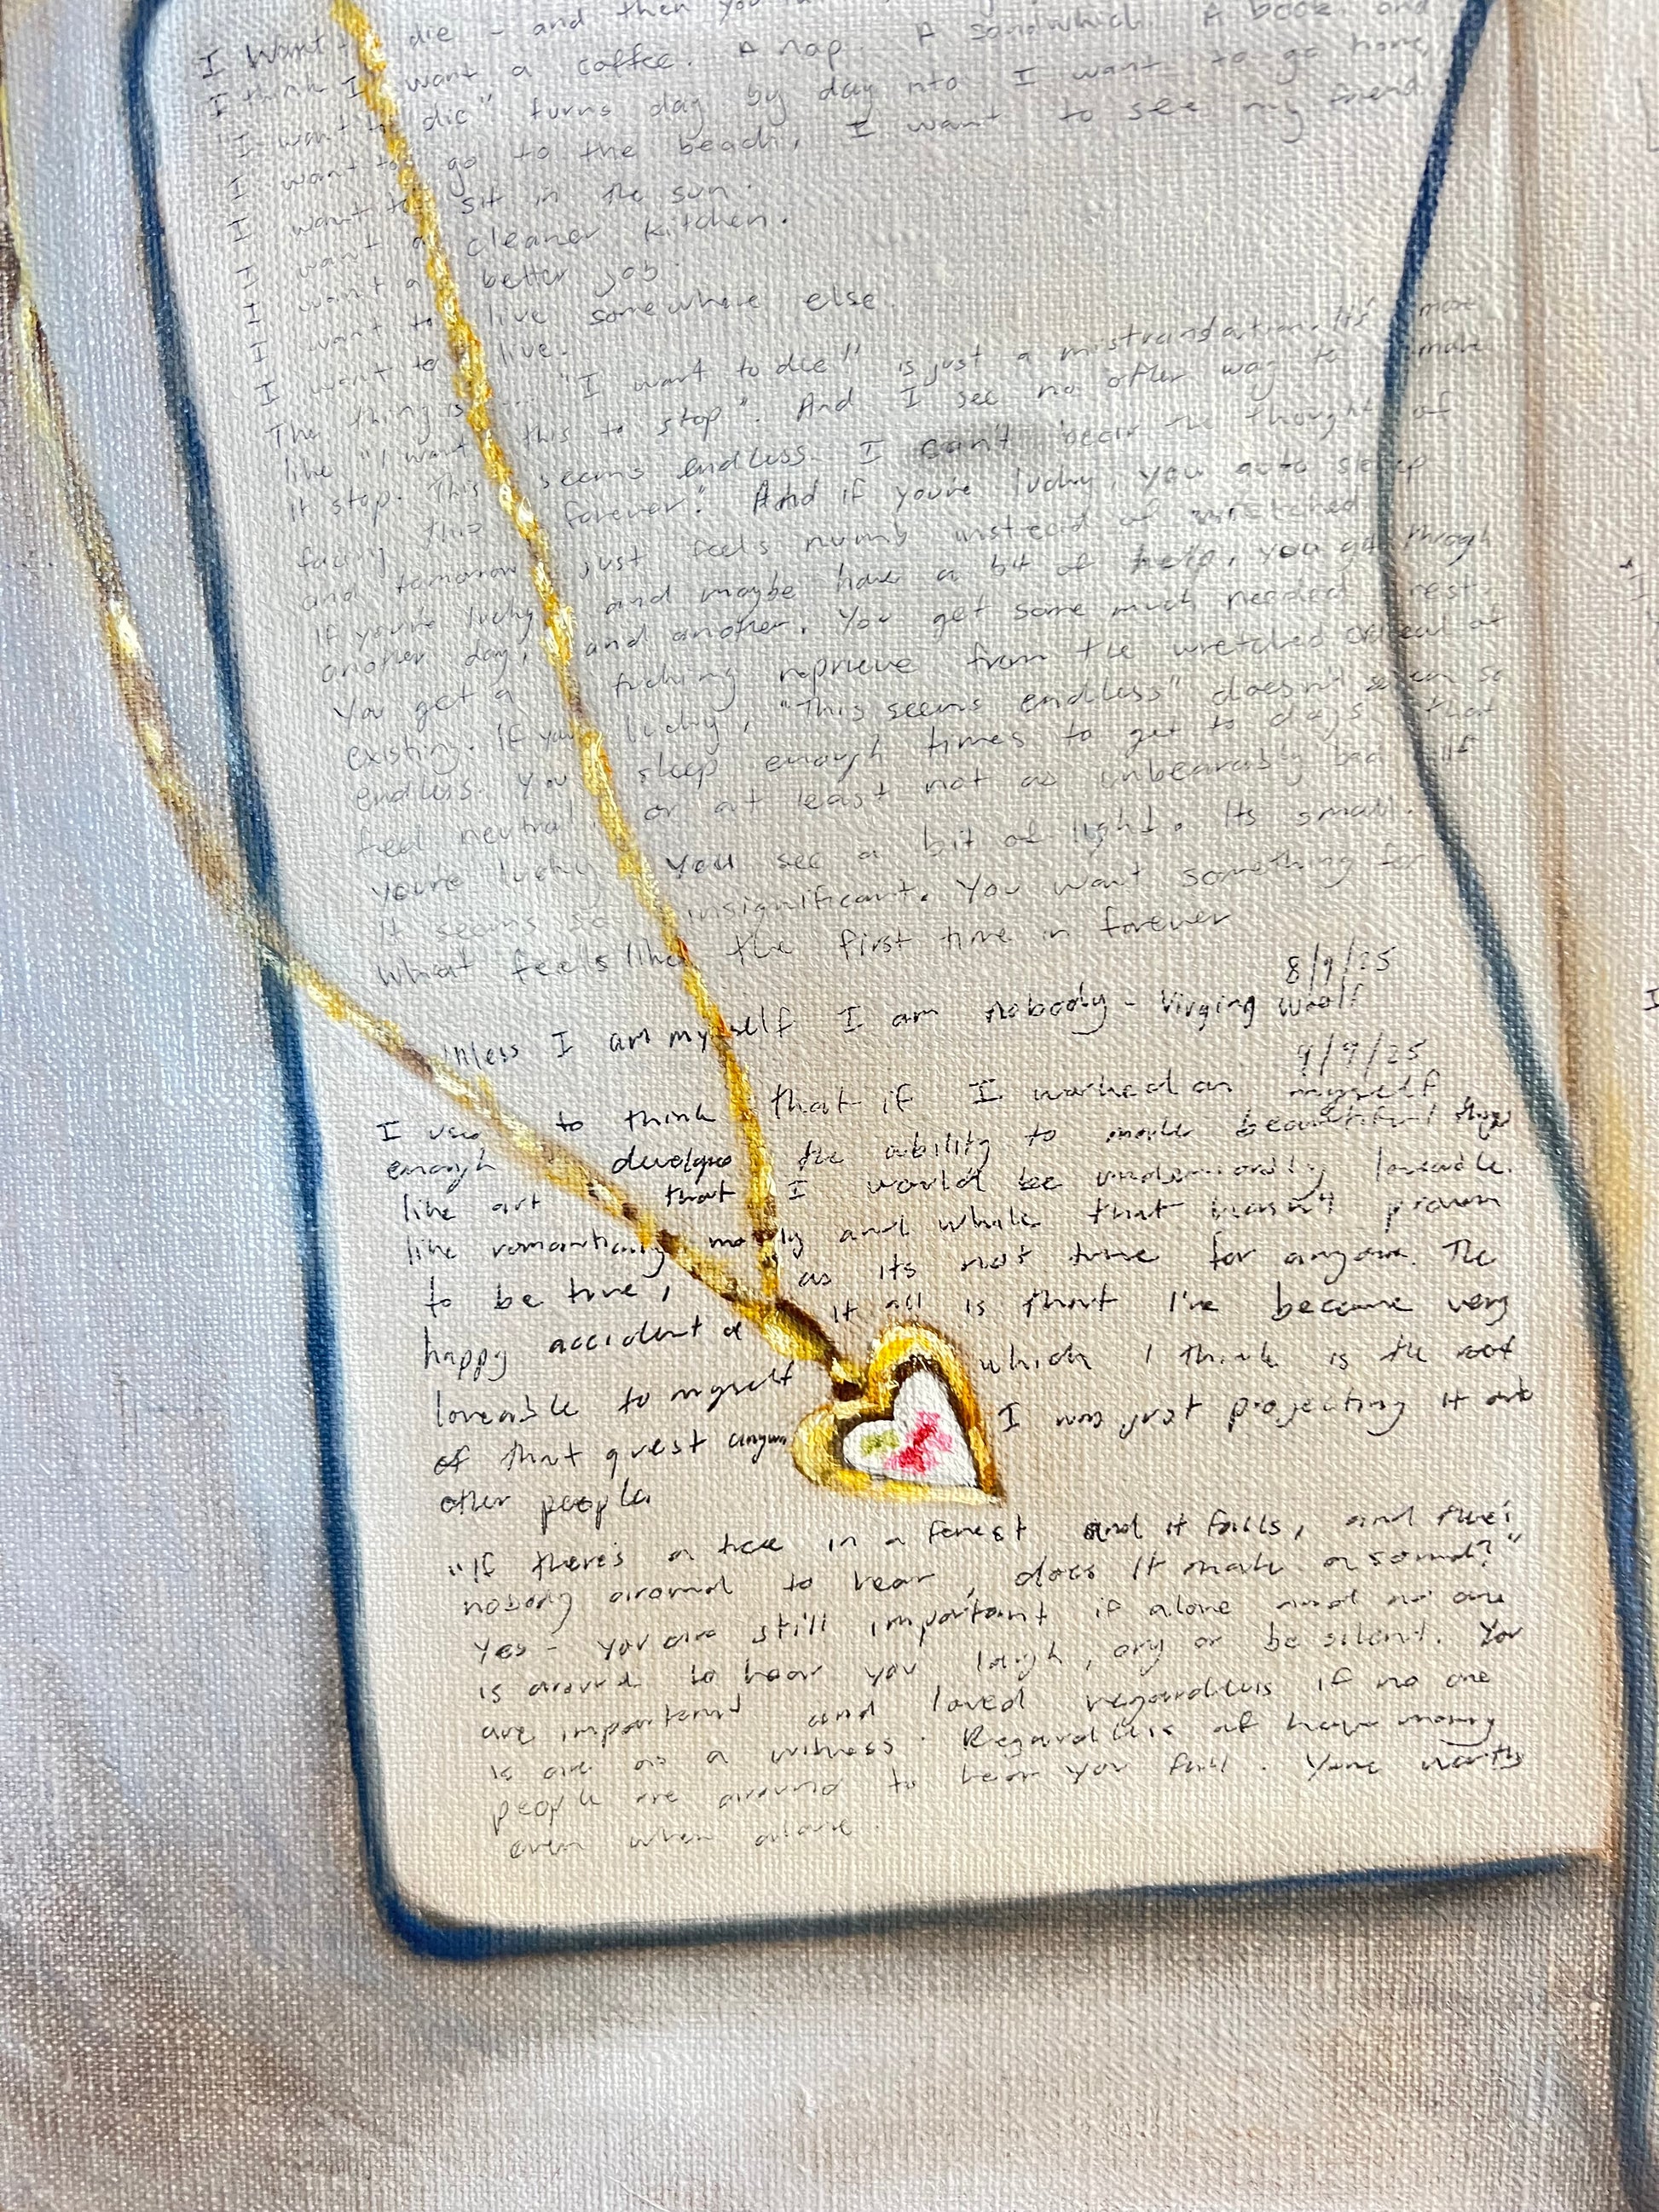 I want to die - and then you
I think I want a coffee. A nap. A sandwhich. A book. and
"I want to die" turns day by day nto I want to go home,
I want to go to the beach, I want to see my friend
I want to sit in the sun.
I want a cleaner kitchen.
I want a better job.
I want to live somewhere else.
I want to live.
The thing is ... "I want to die" is just a mistranslation. Its more
like "I want this to stop". And I see no other way to make
it stop. This seems endless. I can't bear the thought of
facing this forever." And if you're lucky, you go to sleep
and tomorrow just feels numb instead of wretched
If you're lucky and maybe have a bit of help, you get through
another day, and another. You get some much needed rest.
You get a fucking reprieve from the wretched ordeal of
existing. If you lucky, "This seems endless" doesn't seem so
endless. You sleep enough times to get to days that
feel neutral, or at least not as unbearably bad. If
you're lucky you see a bit of light. Its small.
It seems so insignificant. You want something for
what feels like the first time in forever
8/9/25
Unless I am myself I am nobody - Virging Woolf
9/9/25
I used to think that if I worked on myself
enough develgpe the ability to make beautiful things
like art that I would be undeniably loveable.
like romantically mostly and while that hasn't proven
to be true, as its not true for anyone. The
happy accident of it all is that I've become very
loveable to myself which I think is the root
of that quest anyway I was just projecting it onto
other people.
"If there's a tree in a forest and it falls, and there's
nobody around to hear, does it make a sound?"
Yes - you are still important if alone and no one
is around to hear you laugh, cry or be silent. You
are important and loved regardless if no one
is are as a witness. Regardless of how many
people are around to hear you fall. Youre worthy
even when alone.
I